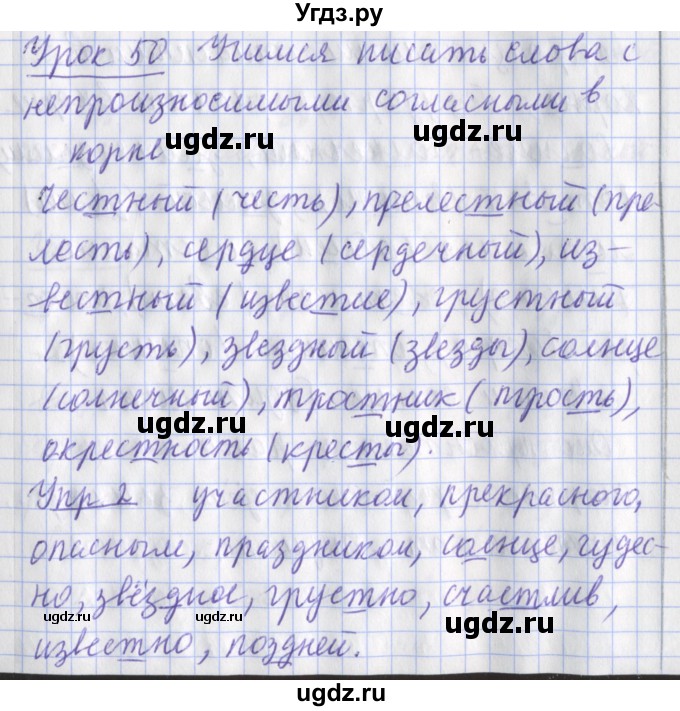 Угдз.ру
Урок 50 Учимся писать слова с
непроизносимыми согласными в
ugdz.ru ugdz.ru
корне
Честный (честь), прелестный (пре-
лесть), сердце (сердечный), из-
вестный (известие), грустный
(грусть), звездный (звезды), солнце
(солнечный), тростник (трость),
ugdz.ru ugdz.ru
окрестность (кресты).
Упр 2 участником, прекрасного,
опасным, праздником, солнце, чудес-
но, звёздное, грустно, счастлив,
ugdz.ru ugdz.ru
известно, поздней.
ugdz.ru